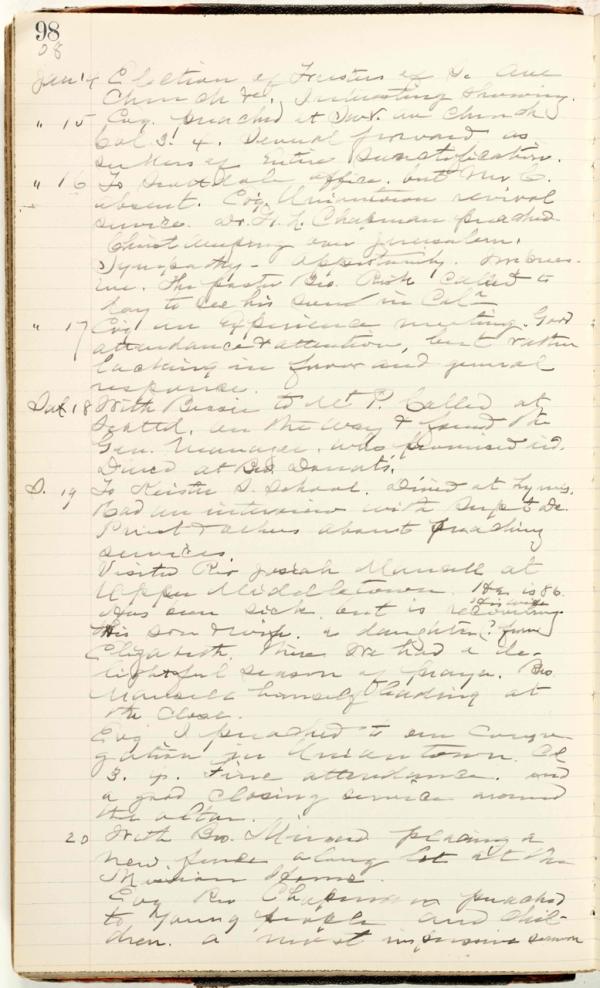 98
98
Jan 14 Election of Trustees of S. Ave
Church &c. Interesting showing.
" 15 Evg. preached at church
Col 3. 4. Several forward as
seekers of Entire Sanctification.
" 16 To Scottdale office. but Mr. C.
absent. Evg. Uniontown revival
service. Dr. H. L. Chapman preached
Christ weeping over Jerusalem.
Sympathy - opportunity.
The pastor Bro. called to
to see his in Cala
" 17 Evg an Experience meeting. Good
attendance & attention, but rather
lacking in and general
response.
Sat 18 With Bessie to Mt P. Called at
Scottd. on the way & found the
Gen. Manager. was promised
Dined at Bro. Donats.
S. 19 To Keister S. School. Dined at
Had an interview with Supt De
Priest & others about preaching
services.
Visited Rev Josiah Mansell at
Upper Middletown. He is 86.
Has been sick but is recovering
His wife
His son & wife. a daughter? from
Elizabeth, there. We had a de-
lightful season of prayer. Bro
Mansell himself leading at
the close.
Evg I preached to our congre-
gation in Uniontown. Col
3. 4. Fine attendance. and
a good closing service around
the altar.
20 With Bro. Minard placing a
new fence along lot at the
Mission Home.
Evg Rev Chapman preached
to young people and chil-
dren. a most impressive sermon